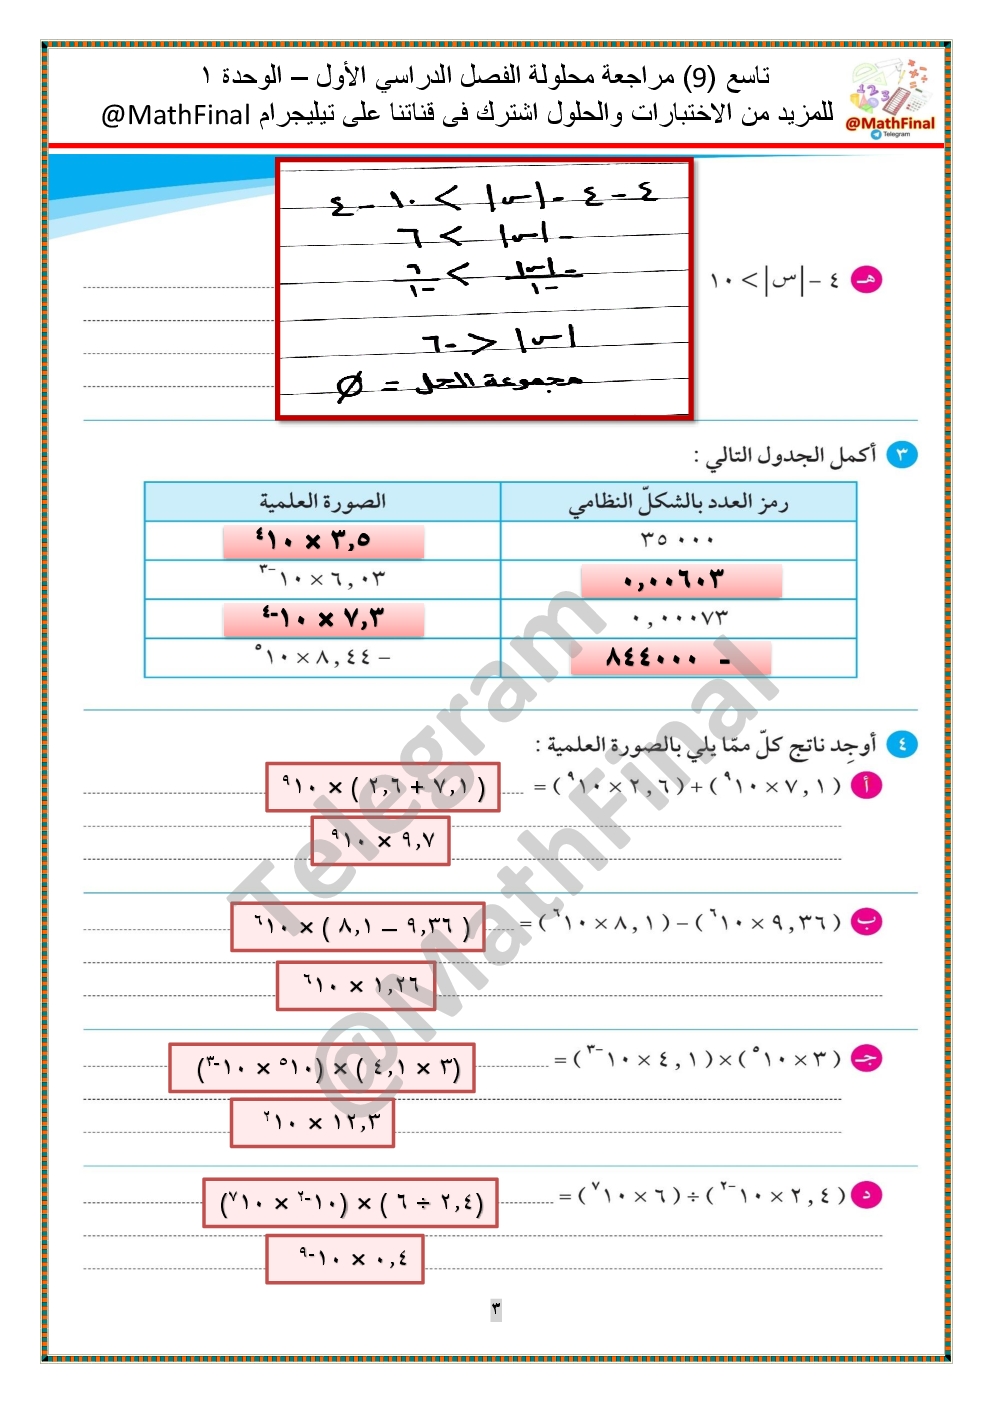 تاسع (9) مراجعة محلولة الفصل الدراسي الأول – الوحدة ١
للمزيد من الاختبارات والحلول اشترك فى قناتنا على تيليجرام @MathFinal
@MathFinal
Telegram
هـ ٤ – |س| > ١٠
٤ – ٤ – |س| > ١٠ – ٤
– |س| > ٦
–|س|/–١ > ٦/–١
|س| < –٦
مجموعة الحل = ∅
٣ أكمل الجدول التالي :
رمز العدد بالشكل النظامي الصورة العلمية
٣٥٠٠٠ ٣,٥ × ١٠⁴
٠,٠٠٦٠٣ ٦,٠٣ × ١٠⁻³
٠,٠٠٠٧٣ ٧,٣ × ١٠⁻⁴
– ٨٤٤٠٠٠ – ٨,٤٤ × ١٠⁵
٤ أوجِد ناتج كلّ ممّا يلي بالصورة العلمية :
أ (٧,١ × ١٠⁹) + (٢,٦ × ١٠⁹) = (٧,١ + ٢,٦) × ١٠⁹
٩,٧ × ١٠⁹
ب (٩,٣٦ × ١٠⁶) – (٨,١ × ١٠⁶) = (٩,٣٦ – ٨,١) × ١٠⁶
١,٢٦ × ١٠⁶
جـ (٣ × ١٠⁵) × (٤,١ × ١٠⁻³) = (٣ × ٤,١) × (١٠⁵ × ١٠⁻³)
١٢,٣ × ١٠²
د (٢,٤ × ١٠⁻²) ÷ (٦ × ١٠⁷) = (٢,٤ ÷ ٦) × (١٠⁻² × ١٠⁷)
٠,٤ × ١٠⁻⁹
Telegram
@MathFinal
٣